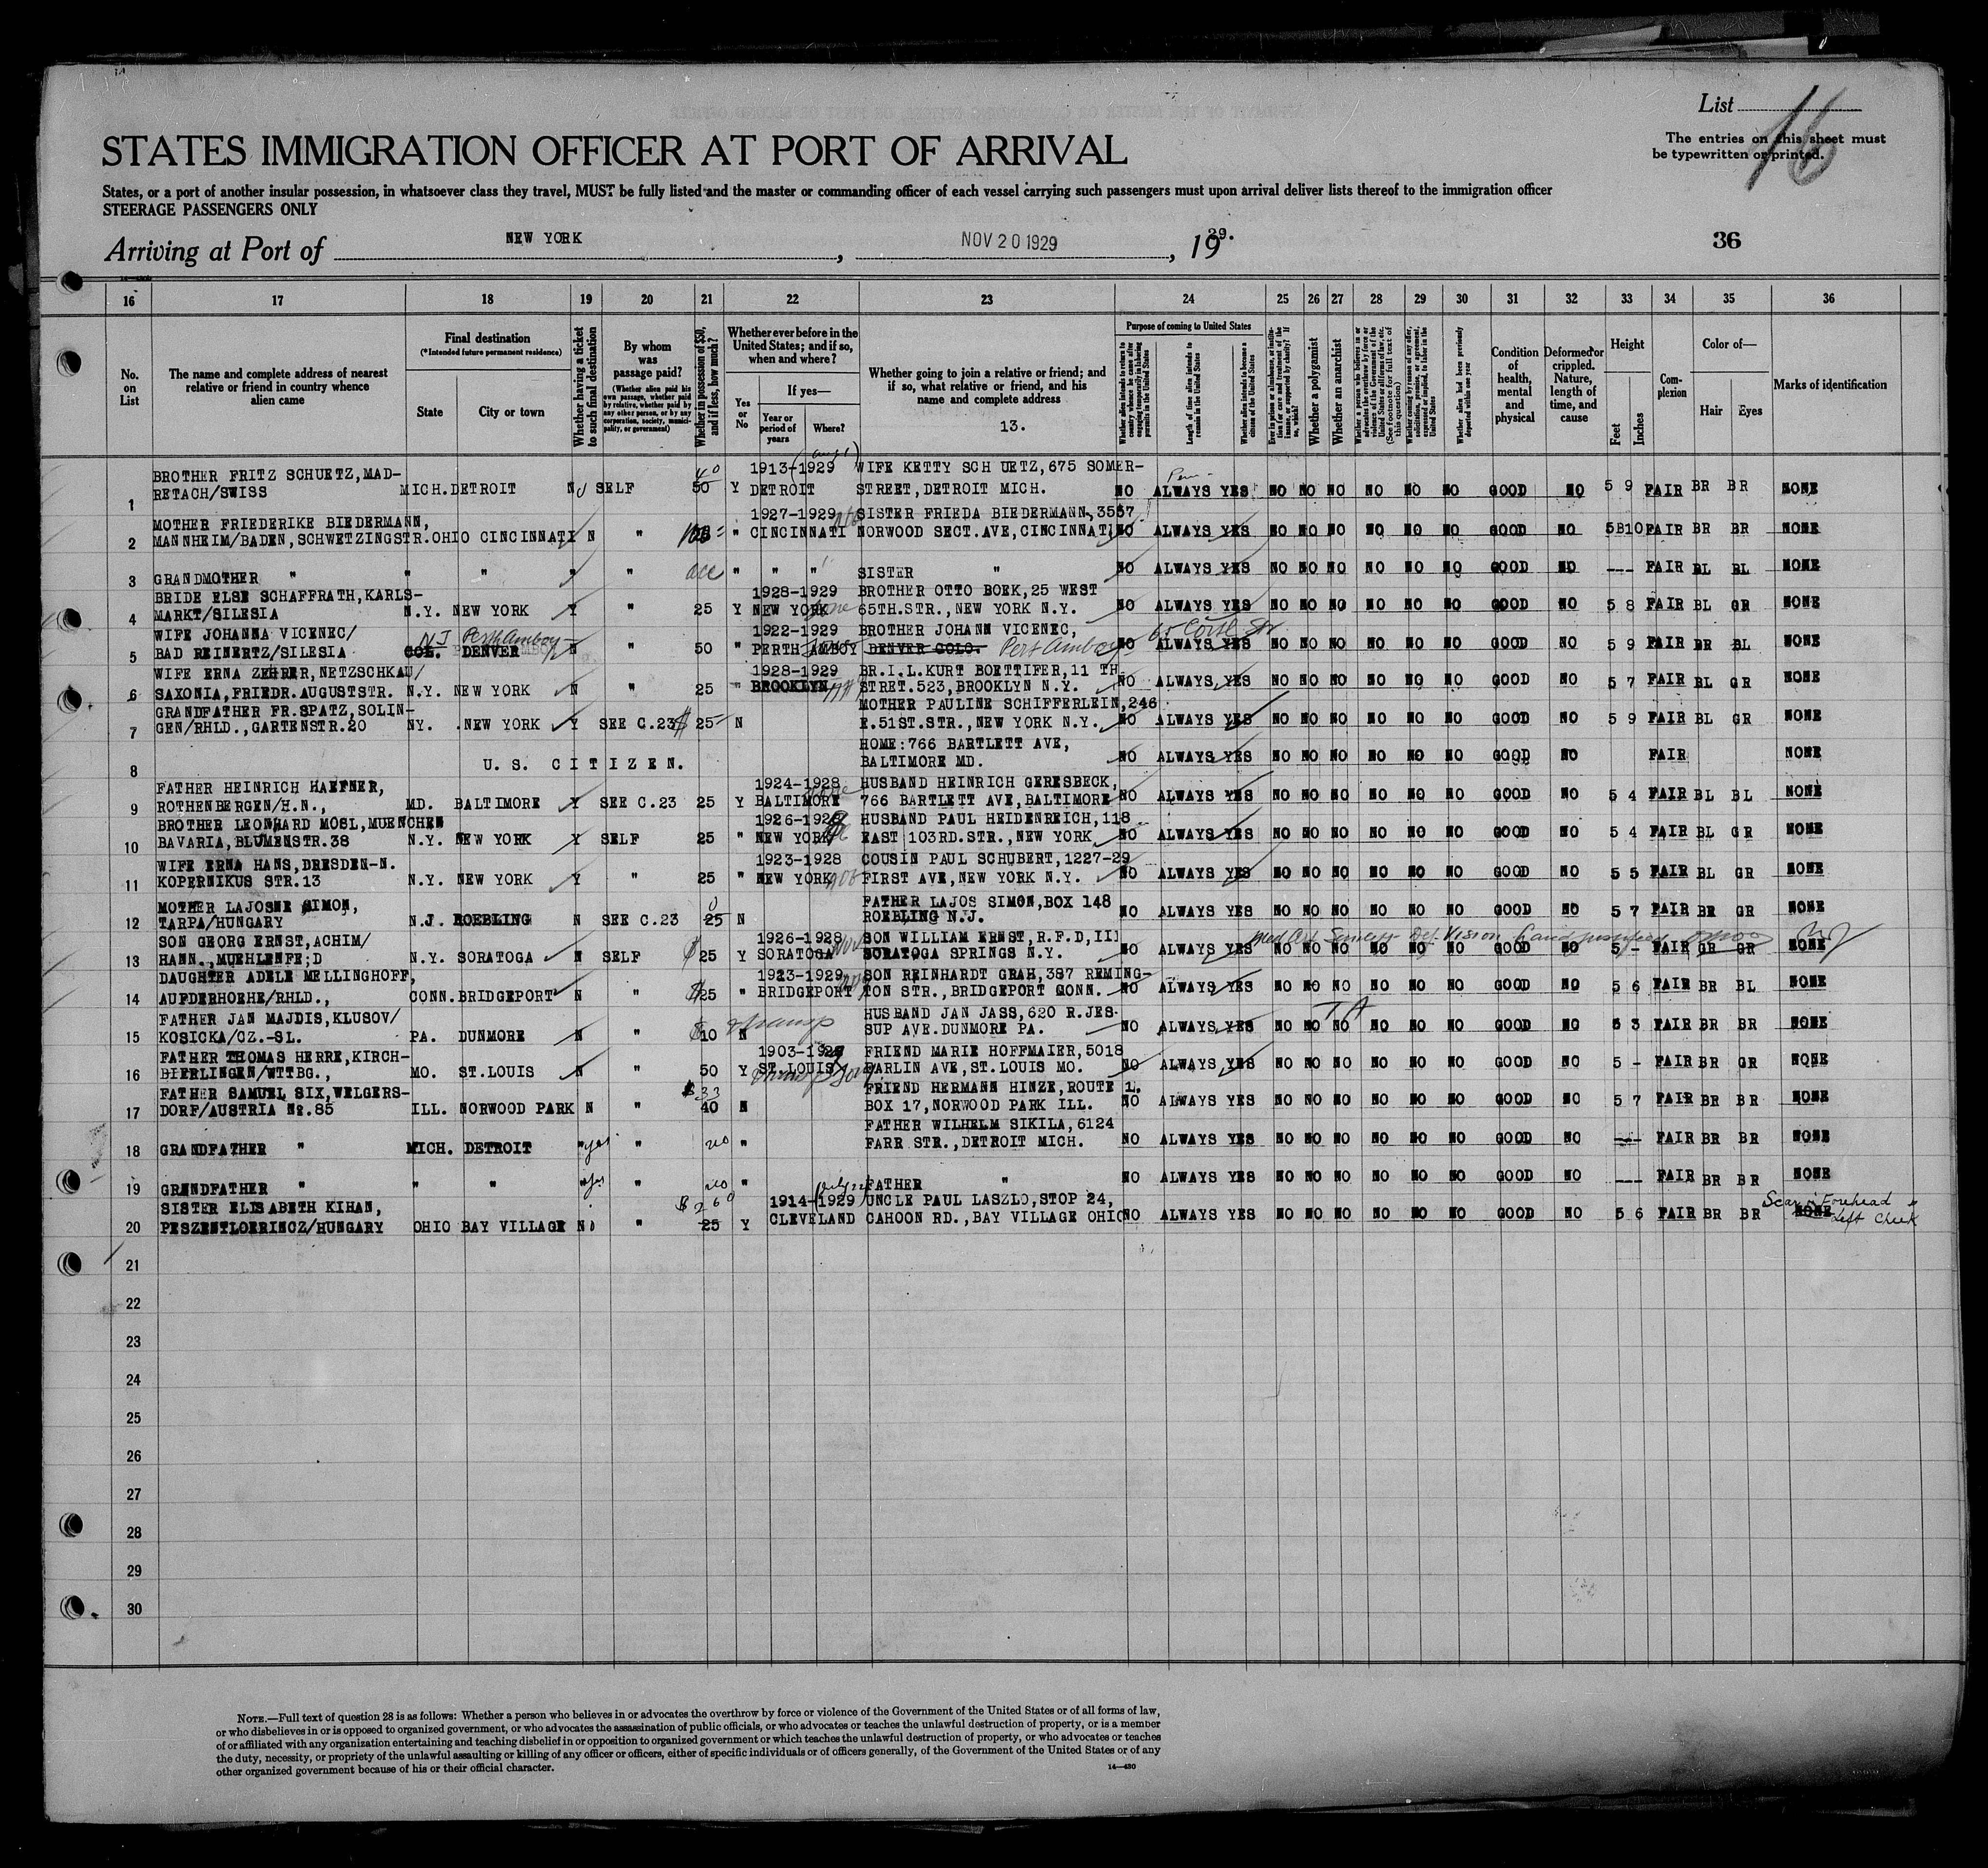 List 16
The entries on this sheet must
be typewritten or printed.
STATES IMMIGRATION OFFICER AT PORT OF ARRIVAL
States, or a port of another insular possession, in whatsoever class they travel, MUST be fully listed and the master or commanding officer of each vessel carrying such passengers must upon arrival deliver lists thereof to the immigration officer
STEERAGE PASSENGERS ONLY
Arriving at Port of NEW YORK, NOV 20 1929, 19 29. 36
16 17 18 19 20 21 22 23 24 25 26 27 28 29 30 31 32 33 34 35 36
No. on List
The name and complete address of nearest relative or friend in country whence alien came
Final destination
(*Intended future permanent residence)
State City or town
Whether having a ticket to such final destination
By whom was passage paid?
(Whether alien paid his own passage, whether paid by relative, whether paid by any other person, or by any corporation, society, municipality, or government)
Whether in possession of $50, and if less, how much?
Whether ever before in the United States; and if so, when and where?
Yes or No
If yes—
Year or period of years Where?
Whether going to join a relative or friend; and if so, what relative or friend, and his name and complete address
13.
Purpose of coming to United States
Whether alien intends to return to country whence he came after engaging temporarily in laboring pursuits in the United States
Length of time alien intends to remain in the United States
Whether alien intends to become a citizen of the United States
Ever in prison or almshouse, or institution for care and treatment of the insane, or supported by charity? If so, which?
Whether a polygamist
Whether an anarchist
Whether a person who believes in or advocates the overthrow by force or violence of the Government of the United States or all forms of law, etc. (See footnote for full text of this question)
Whether coming by reason of any offer, solicitation, promise, or agreement, expressed or implied, to labor in the United States
Whether alien had been previously deported within one year
Condition of health, mental and physical
Deformed or crippled. Nature, length of time, and cause
Height
Feet Inches
Complexion
Color of—
Hair Eyes
Marks of identification
BROTHER FRITZ SCHUETZ,MAD- 40 1913-1929 WIFE KETTY SCH UETZ,675 SOMER-
1 RETACH/SWISS MICH.DETROIT NO SELF 50 Y DETROIT STREET,DETROIT MICH. NO ALWAYS YES NO NO NO NO NO NO GOOD NO 5 9 FAIR BR BR NONE
MOTHER FRIEDERIKE BIEDERMANN, 1927-1929 SISTER FRIEDA BIEDERMANN,3567
2 MANNHEIM/BADEN,SCHWETZINGSTR. OHIO CINCINNATI N " " CINCINNATI NORWOOD SECT.AVE,CINCINNATI NO ALWAYS YES NO NO NO NO NO NO GOOD NO 5B10 FAIR BR BR NONE
3 GRANDMOTHER " " " " " " " " SISTER " NO ALWAYS YES NO NO NO NO NO NO GOOD NO --- FAIR BL BL NONE
BRIDE ELSE SCHAFFRATH,KARLS- 1928-1929 BROTHER OTTO BOEK,25 WEST
4 MARKT/SILESIA N.Y. NEW YORK Y " 25 Y NEW YORK 65TH.STR.,NEW YORK N.Y. NO ALWAYS YES NO NO NO NO NO NO GOOD NO 5 8 FAIR BL GR NONE
WIFE JOHANNA VICENEC/ NJ Perth Amboy 1922-1929 BROTHER JOHANN VICENEC,
5 BAD REINERTZ/SILESIA COL. DENVER N " 50 " PERTH AMBOY DENVER COLO. Pert Amboy NO ALWAYS YES NO NO NO NO NO NO GOOD NO 5 9 FAIR BR BL NONE
WIFE ERNA ZEHRER,NETZSCHKAU/ 1928-1929 BR.I.L.KURT BOETTIFER,11 TH
6 SAXONIA,FRIEDR.AUGUSTSTR. N.Y. NEW YORK N " 25 " BROOKLYN STRET.523,BROOKLYN N.Y. NO ALWAYS YES NO NO NO NO NO NO GOOD NO 5 7 FAIR BL GR NONE
GRANDFATHER FR.SPATZ,SOLIN- MOTHER PAULINE SCHIFFERLEIN,246
7 GEN/RHLD.,GARTENSTR.20 NY. .NEW YORK Y SEE C.23 $ 25 N E.51ST.STR.,NEW YORK N.Y. NO ALWAYS YES NO NO NO NO NO NO GOOD NO 5 9 FAIR BL GR NONE
HOME:766 BARTLETT AVE,
8 U. S. C I T I Z E N. BALTIMORE MD. NO ALWAYS YES NO NO NO NO NO NO GOOD NO FAIR NONE
FATHER HEINRICH HAEFNER, 1924-1928 HUSBAND HEINRICH GERESBECK,
9 ROTHENBERGEN/H.N., MD. BALTIMORE Y SEE C.23 25 Y BALTIMORE 766 BARTLETT AVE,BALTIMORE NO ALWAYS YES NO NO NO NO NO NO GOOD NO 5 4 FAIR BL BL NONE
BROTHER LEONHARD MOSL,MUENCHEN 1926-1928 HUSBAND PAUL HEIDENREICH,118
10 BAVARIA,BLUMENSTR.38 N.Y. NEW YORK Y SELF 25 " NEW YORK EAST 103RD.STR.,NEW YORK NO ALWAYS YES NO NO NO NO NO NO GOOD NO 5 4 FAIR BL GR NONE
WIFE ERNA HANS,DRESDEN-N. 1923-1928 COUSIN PAUL SCHUBERT,1227-29
11 KOPERNIKUS STR.13 N.Y. NEW YORK Y " 25 " NEW YORK FIRST AVE,NEW YORK N.Y. NO ALWAYS YES NO NO NO NO NO NO GOOD NO 5 5 FAIR BL GR NONE
MOTHER LAJOSNE SIMON, 0 FATHER LAJOS SIMON,BOX 148
12 TARPA/HUNGARY N.J. ROEBLING N SEE C.23 25 N ROEBLING N.J. NO ALWAYS YES NO NO NO NO NO NO GOOD NO 5 7 FAIR BR GR NONE
SON GEORG ERNST,ACHIM/ 1926-1928 SON WILLIAM ERNST,R.F.D,III Vision
13 HANN.,MUEHLENFE;D N.Y. SORATOGA N SELF $ 25 Y SORATOGA SORATOGA SPRINGS N.Y. NO ALWAYS YES NO NO NO NO NO NO GOOD NO 5 - FAIR GR GR NONE
DAUGHTER ADELE MELLINGHOFF, 1923-1929 SON REINHARDT GRAH,387 REMING-
14 AUFDERHOEHE/RHLD., CONN.BRIDGEPORT N " $25 " BRIDGEPORT TON STR.,BRIDGEPORT CONN. NO ALWAYS YES NO NO NO NO NO NO GOOD NO 5 6 FAIR BR BL NONE
FATHER JAN MAJDIS,KLUSOV/ HUSBAND JAN JASS,620 R.JES-
15 KOSICKA/CZ.-SL. PA. DUNMORE N " 10 N SUP AVE.DUNMORE PA. NO ALWAYS YES NO NO NO NO NO NO GOOD NO 5 3 FAIR BR BR NONE
FATHER THOMAS HERRE,KIRCH- 1903-1929 FRIEND MARIE HOFFMAIER,5018
16 BIERLINGEN/WTTBG., MO. ST.LOUIS N " 50 Y ST.LOUIS DARLIN AVE,ST.LOUIS MO. NO ALWAYS YES NO NO NO NO NO NO GOOD NO 5 - FAIR BR GR NONE
FATHER SAMUEL SIX,WELGERS- $33 FRIEND HERMANN HINZE,ROUTE 1,
17 DORF/AUSTRIA No.85 ILL. NORWOOD PARK N " 40 N BOX 17,NORWOOD PARK ILL. NO ALWAYS YES NO NO NO NO NO NO GOOD NO 5 7 FAIR BR BR NONE
FATHER WILHELM SIKILA,6124
18 GRANDFATHER " MICH. DETROIT " yes " no " FARR STR.,DETROIT MICH. NO ALWAYS YES NO NO NO NO NO NO GOOD NO --- FAIR BR BR NONE
19 GRANDFATHER " " " " yes " no " FATHER " NO ALWAYS YES NO NO NO NO NO NO GOOD NO --- FAIR BR BR NONE
SISTER ELISABETH KIHAN, $260 1914-1929 UNCLE PAUL LASZLO,STOP 24, Scar Forehead
20 PESZENTLOERINCZ/HUNGARY OHIO BAY VILLAGE NO " 25 Y CLEVELAND CAHOON RD.,BAY VILLAGE OHIO NO ALWAYS YES NO NO NO NO NO NO GOOD NO 5 6 FAIR BR BR NONE Left Cheek
21
22
23
24
25
26
27
28
29
30
NOTE.—Full text of question 28 is as follows: Whether a person who believes in or advocates the overthrow by force or violence of the Government of the United States or of all forms of law,
or who disbelieves in or is opposed to organized government, or who advocates the assassination of public officials, or who advocates or teaches the unlawful destruction of property, or is a member
of or affiliated with any organization entertaining and teaching disbelief in or opposition to organized government or which teaches the unlawful destruction of property, or who advocates or teaches
the duty, necessity, or propriety of the unlawful assaulting or killing of any officer or officers, either of specific individuals or of officers generally, of the Government of the United States or of any
other organized government because of his or their official character. 14—430